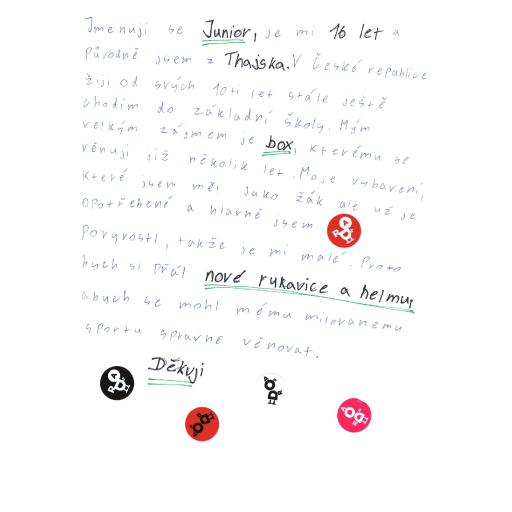 Jmenuji se Junior, je mi 16 let a
původně jsem z Thajska. V České republice
žiji od svých 10ti let stále ještě
chodím do základní školy. Mým
velkým zájmem je box, kterému se
věnuji již několik let. Moje vybavení,
které jsem měl jako žák ale už je
opotřebené a hlavně jsem
povyrostl, takže je mi malé. Proto
bych si přál nové rukavice a helmu,
abych se mohl mému milovanemu
sportu spravně věnovat.
Děkuji